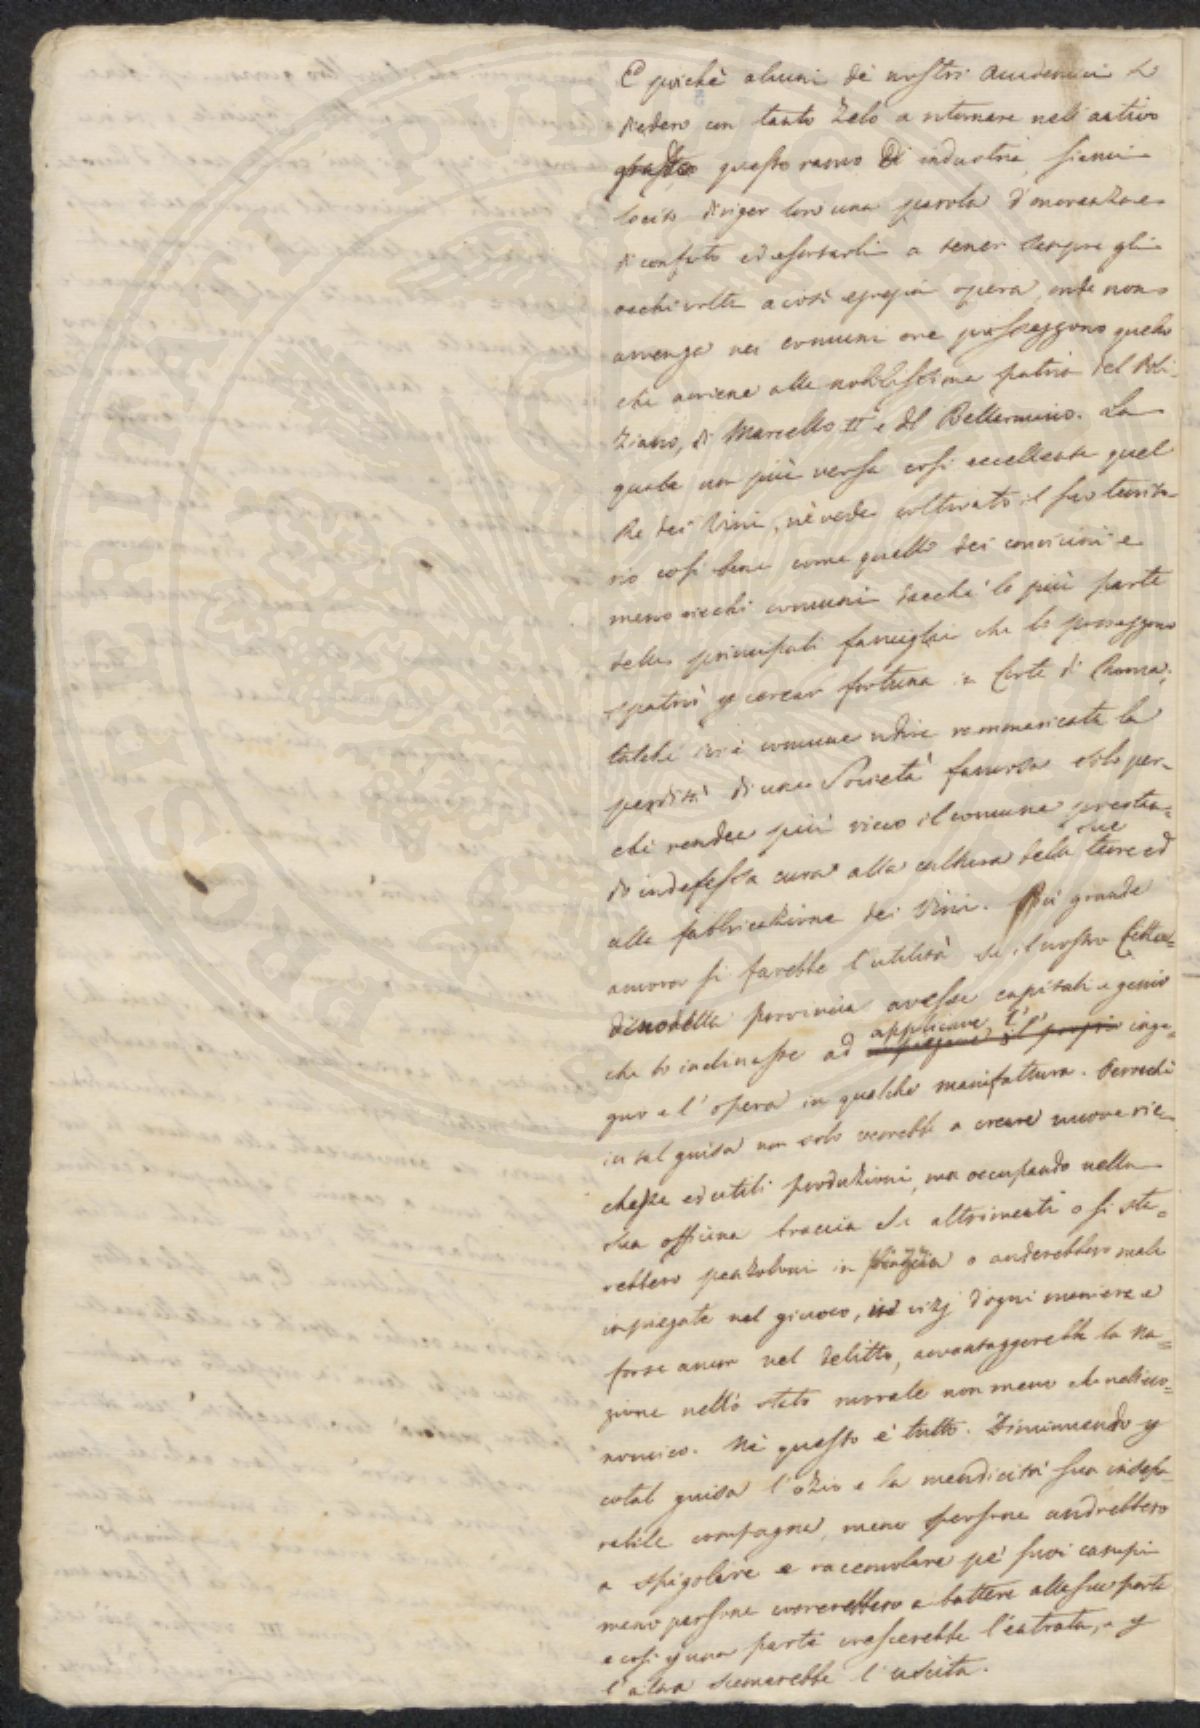 E poichè alcuni de' nostri Accademici si
diedero con tanto zelo a ritornare nell'antivo
questo ramo di industria, siami
lecito diriger loro una parola d'onoranza e
di conforto ed esortarli a tener sempre gli
occhi volti a così egregia opera, onde non
avvenga nei comuni ove posseggono quello
che avviene alla nobilissima patria del Poli-
ziano, di Marcello II e del Bellarmino. La
quale non più versa così eccellente quel
Re dei Vini, nè vede coltivato il suo territo-
rio così bene come quello dei convicini e
meno ricchi comuni dacchè la più parte
delle principali famiglie che lo posseggono
spatriò p cercar fortuna in Corte di Roma;
talchè ivi è comune udire rammaricata la
perdita di una Società famosa solo per-
chè rendea più ricco il comune prestan-
do indefessa cura alla cultura delle sue terre ed
alla fabbricazione dei Vini. Più grande
ancora si farebbe l'utilità se il nostro Cittad-
dino della provincia avesse capitali e genio
che lo inclinasse ad applicare l' inge-
gno e l'opera in qualche manifattura. Perrochè
in tal guisa non solo verrebbe a creare nuove ric-
chezze ed utili produzioni, ma occupando nella
sua officina braccia che altrimenti o si sta-
rebbero penzoloni in piazza o anderebbero male
impiegate nel giuoco, in vizj d'ogni maniera e
forse ancor nel delitto, avvantaggerebbe la na-
zione nello stato morale non meno che nell'eco-
nomico. Nè questo è tutto. Diminuendo p
cotal guisa l'ozio e la mendicità sua insepa-
rabile compagna, meno persone andrebbero
a spigolare e raccomolare pe' suoi campi
meno persone correrebbero a battere alle sue porte
e così p una parte crescerebbe l'entrata, e p
l'altra scemerebbe l'uscita.